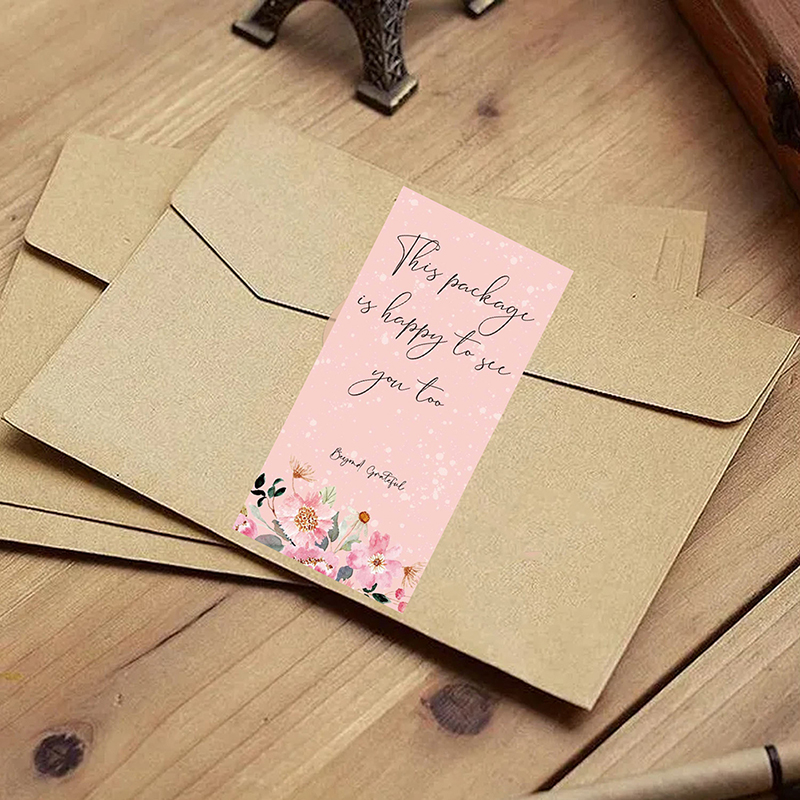 This package
is happy to see
you too
Beyond Grateful